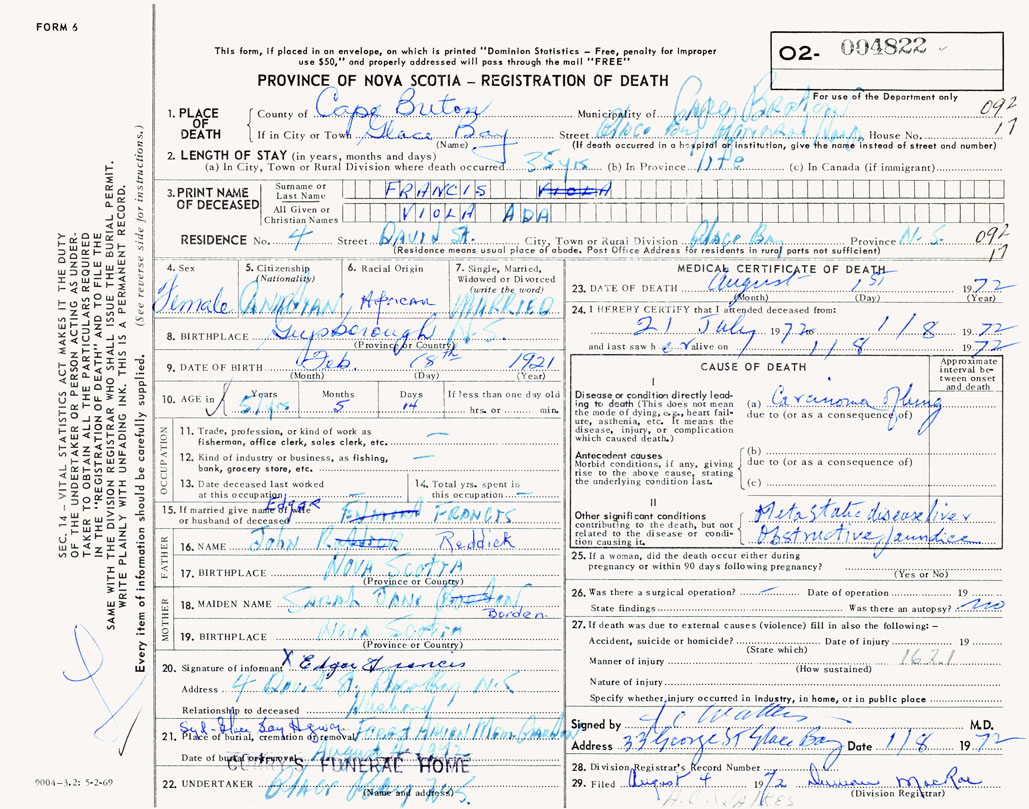 FORM 6
This form, if placed in an envelope, on which is printed "Dominion Statistics – Free, penalty for improper
use $50," and properly addressed will pass through the mail "FREE"
O2- 004822
PROVINCE OF NOVA SCOTIA – REGISTRATION OF DEATH
For use of the Department only
092
17
1. PLACE OF DEATH
County of Cape Breton Municipality of Cape Breton
If in City or Town Glace Bay Street Glace Bay General Hosp. House No.
(Name) (If death occurred in a hospital or institution, give the name instead of street and number)
2. LENGTH OF STAY (in years, months and days)
(a) In City, Town or Rural Division where death occurred 35 yrs (b) In Province life (c) In Canada (if immigrant)
3. PRINT NAME OF DECEASED
Surname or Last Name FRANCIS VIOLA
All Given or Christian Names VIOLA ADA
RESIDENCE No. 4 Street DAVID St. City, Town or Rural Division Glace Bay Province N.S.
(Residence means usual place of abode. Post Office Address for residents in rural parts not sufficient)
092
17
4. Sex Female
5. Citizenship (Nationality) CANADIAN
6. Racial Origin African
7. Single, Married, Widowed or Divorced (write the word) MARRIED
8. BIRTHPLACE Guysborough N.S.
(Province or Country)
9. DATE OF BIRTH Feb. 18th 1921
(Month) (Day) (Year)
10. AGE in Years 51 yrs Months 5 Days 14 If less than one day old hrs. or min.
OCCUPATION
11. Trade, profession, or kind of work as
fisherman, office clerk, sales clerk, etc. —
12. Kind of industry or business, as fishing,
bank, grocery store, etc. —
13. Date deceased last worked
at this occupation
14. Total yrs. spent in
this occupation —
15. If married give name of wife
or husband of deceased Edgar Edmond FRANCIS
FATHER
16. NAME John Reddick
17. BIRTHPLACE NOVA SCOTIA
(Province or Country)
MOTHER
18. MAIDEN NAME Sarah Jane Borden
19. BIRTHPLACE NOVA SCOTIA
(Province or Country)
20. Signature of informant X Edgar Francis
Address 4 David St. Glace Bay N.S
Relationship to deceased Husband
Syd-Glace Bay Hgwy.
21. Place of burial, cremation or removal Forest
Date of burial or removal August 4
CURRY'S FUNERAL HOME
22. UNDERTAKER Glace Bay N.S.
(Name and address)
MEDICAL CERTIFICATE OF DEATH
23. DATE OF DEATH August 1st 1972
(Month) (Day) (Year)
24. I HEREBY CERTIFY that I attended deceased from:
21 July 1972 to 1/8 1972
and last saw her alive on 1/8 1972
CAUSE OF DEATH
Approximate interval between onset and death
I
Disease or condition directly leading
to death (This does not mean
the mode of dying, e.g., heart failure,
asthenia, etc. It means the
disease, injury, or complication
which caused death.)
(a) Carcinoma of lung
due to (or as a consequence of)
Antecedent causes
Morbid conditions, if any, giving
rise to the above cause, stating
the underlying condition last.
(b)
due to (or as a consequence of)
(c)
II
Other significant conditions
contributing to the death, but not
related to the disease or condition
causing it.
Metastatic disease liver
Obstructive jaundice
25. If a woman, did the death occur either during
pregnancy or within 90 days following pregnancy?
(Yes or No)
26. Was there a surgical operation? — Date of operation 19
State findings Was there an autopsy? no
27. If death was due to external causes (violence) fill in also the following: –
Accident, suicide or homicide? Date of injury 19
(State which)
Manner of injury 162.1
(How sustained)
Nature of injury
Specify whether injury occurred in industry, in home, or in public place
Signed by M.D.
Address 33 George St Glace Bay Date 1/8 1972
28. Division Registrar's Record Number
29. Filed August 4 1972 MacRae
(Division Registrar)
SEC. 14 – VITAL STATISTICS ACT MAKES IT THE DUTY
OF THE UNDERTAKER OR PERSON ACTING AS UNDERTAKER
TO OBTAIN ALL THE PARTICULARS REQUIRED
IN THE "REGISTRATION OF DEATH" AND TO FILE THE
SAME WITH THE DIVISION REGISTRAR WHO SHALL ISSUE THE BURIAL PERMIT.
WRITE PLAINLY WITH UNFADING INK. THIS IS A PERMANENT RECORD.
Every item of information should be carefully supplied. (See reverse side for instructions.)
9004-3.2: 5-2-69